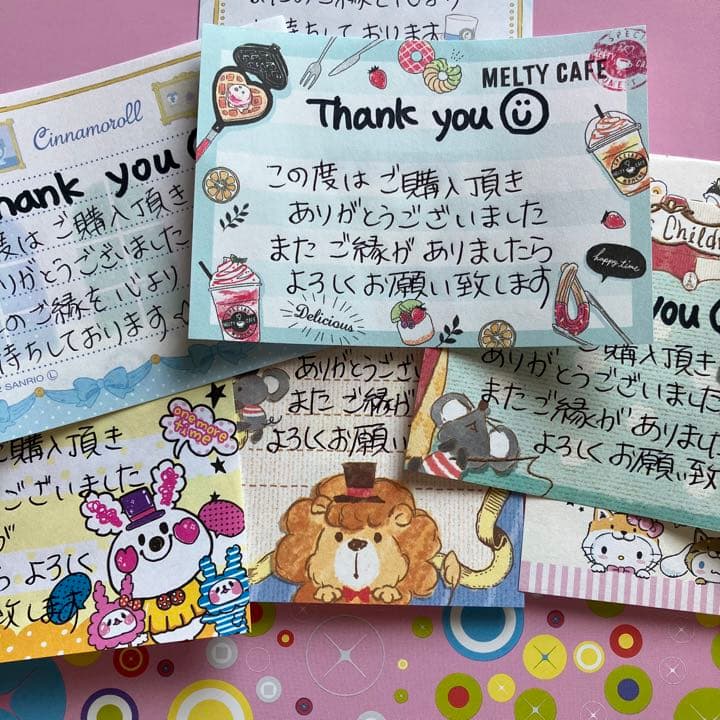 またのご縁を心より
お待ちしております
MELTY CAFE
Thank you
この度は ご購入頂き
ありがとうございました
また ご縁が ありましたら
よろしくお願い致します
Delicious
happy time
SPECIAL
Cinnamoroll
hank you
度は ご購入頂き
りがとうございました
のご縁を心より
待ちしております
SANRIO
Childre
you
ご購入頂き
ありがとうございまし
また ご縁が ありました
よろしく お願い致
one more
time
ご購入頂き
ございました
が
ら よろしく
致します
ありがとうござい
また ご縁が
よろしくお願い